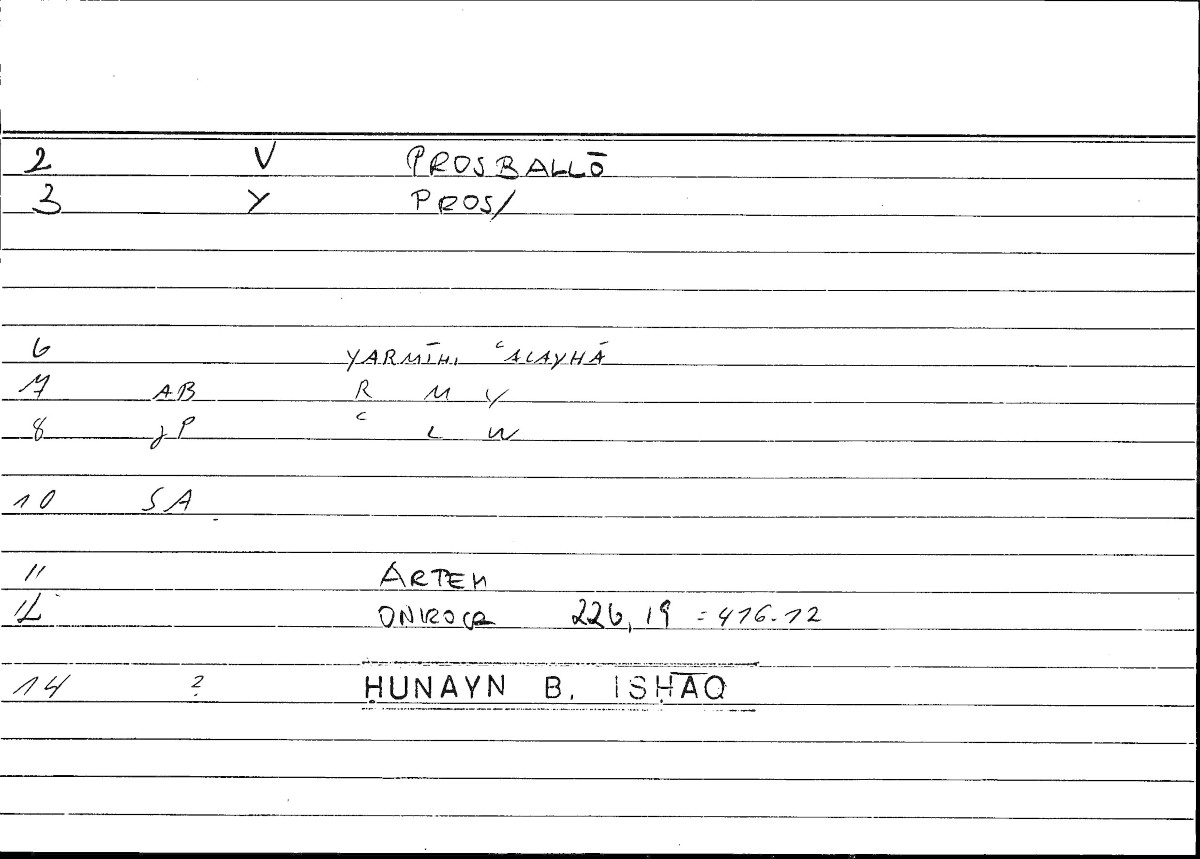 2 V PROSBALLŌ
3 Y PROS/
6 YARMĪHI ʿALAYHĀ
7 AB R M Y
8 JP ʿ L W
10 SA
11 ARTEM
12 ONIROCR 226,19 = 416.12
14 ? ḤUNAYN B. ISḤĀQ